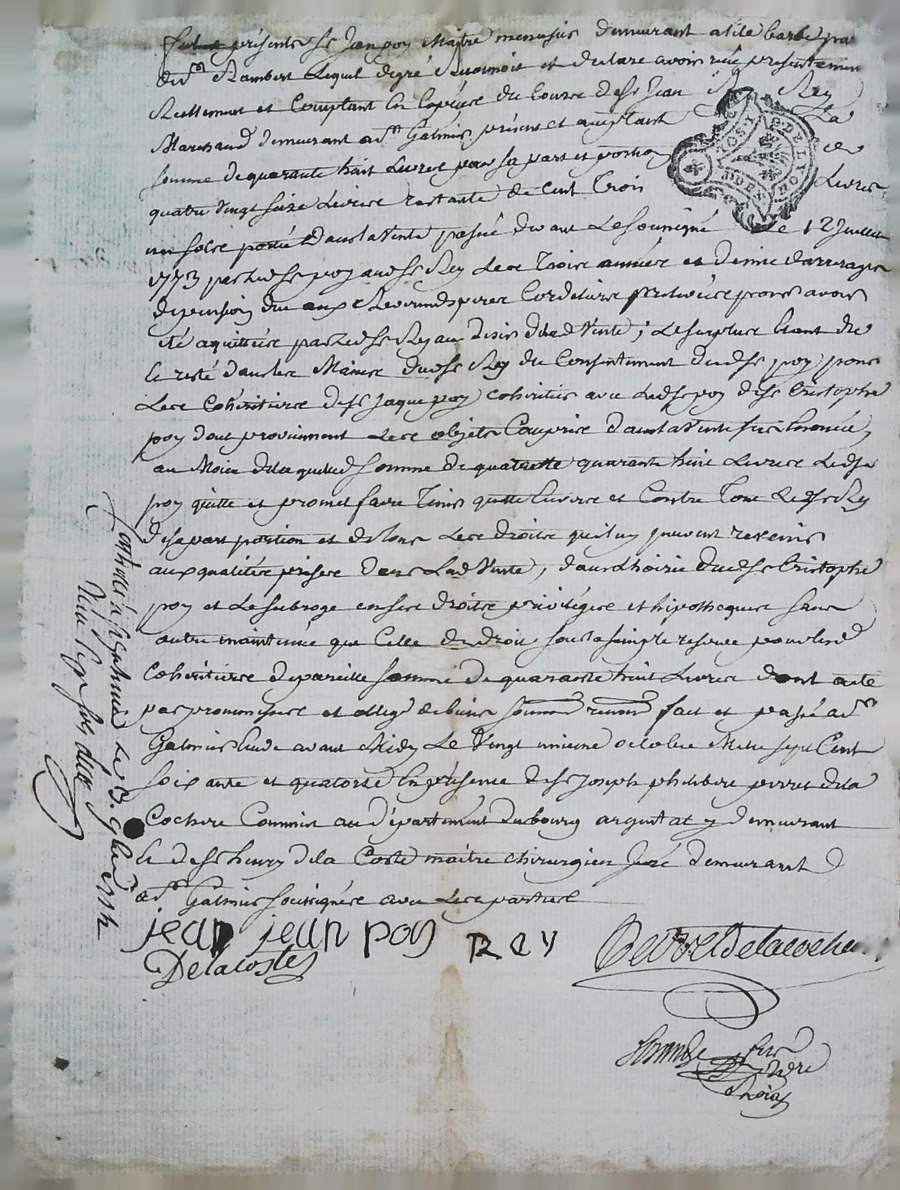 fut présent sr Jean poy Maitre menusier demeurant a ste barbe par
de st Rambert Lequel degré Quarinoit et declare avoir reçu presentemen
Reellement et Comptant En Espéces du Cours de sr Jean Rey
Marchand demeurant a st Galmier présent et acceptant La
somme de quarante huit Livres pour sa part et portion de
quatre vingt seize Livres restante de Cent Trois Livres
un sols portée Dans la Vente passée devant Le soussigné Le 12 Juillet
1773 par Led sr poy aud sr Rey Les Trois années et demie d'arrerages
de pension due aux Reverends peres Cordeliers avoir
été aquittées par Led sr Rey au desir de lad Vente; Le surplus étant
resté dans les Mains dud sr Rey du Consentement dud sr poy pour
Les Cohéritiers de sr Jaque poy Cohéritier avec Led sr poy de sr Cristophe
poy dont proviennent Les objets Compris dans la Vente sus énoncée,
au Moien de laquelle somme de quarante huit Livres Led sr
poy quitte et promet faire Tenir quitte Envers et Contre Tous Led sr Rey
de sa part portion et de tous Les droits qui luy peuvent revenir
aux qualités prises Dans Lad Vente, dans l'hoirie dud sr Cristophe
poy et Le subroge en ses droits privilèges et hipotheques sans
autre maintenue que Celle de droit sous la simple reserve pour lesd
Cohéritiers de pareille somme de quarante huit Livres dont acte
par promesses et oblig de biens soumons renons fait et passé a st
Galmier Etude avant Midy Le Vingt unieme octobre Mille sept Cent
soixante et quatorse En présence de sr Joseph philibert perret de la
Cochere Commis au département du bourg argental y demeurant
et de sr henry de la Coste maitre chirurgien Juré demeurant
a st Galmier soussignés avec Les parties
jean jean poy REY Perret Delacochere
Delacoste
Nore
Roial
Controlé a st Galmier Le 3. 9bre 1774
Reçu sept sols